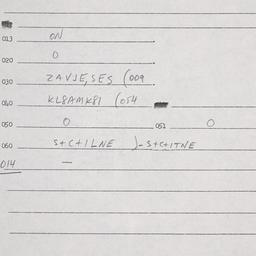 013 ON
020 0
030 ZAVJE,SES (009
040 KL8AMK81 (054
050 0 051 0
060 S+C+ILNE )-S+C+ITNE
014 —